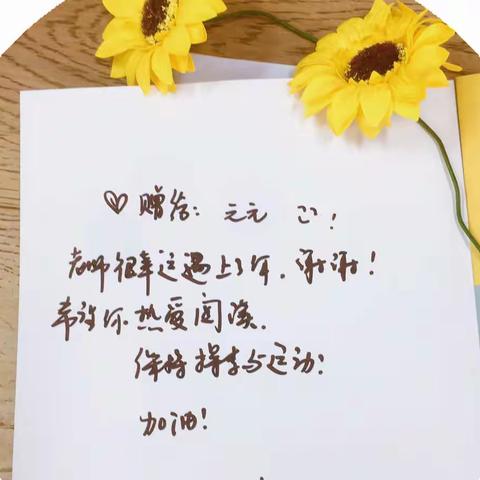 ♡ 赠给: 元元 !
老师很幸运遇上了你,谢谢!
希望你热爱阅读,
保持 与运动!
加油!